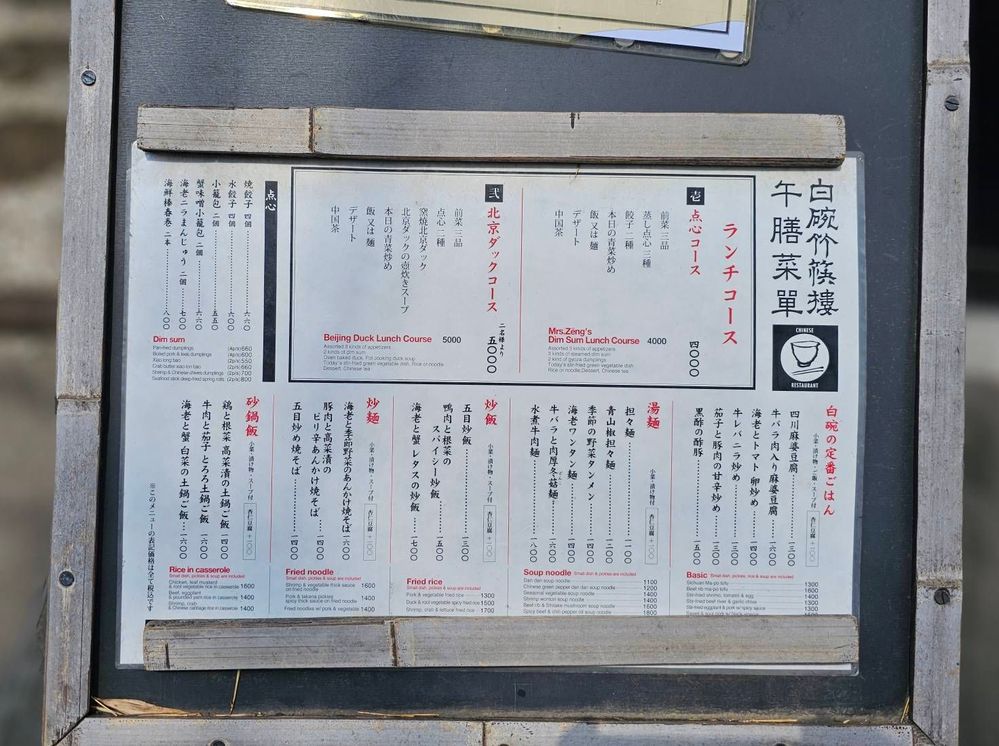 白碗竹筷樓
午膳菜單
CHINESE
RESTAURANT
ランチコース
壱 点心コース 四〇〇〇
前菜 三品
蒸し点心 三種
餃子 二種
本日の青菜炒め
飯 又は 麺
デザート
中国茶
Mrs.Zeng's
Dim Sum Lunch Course 4000
Assorted 3 kinds of appetizers
3 kinds of steamed dim sum
2 kind of gyoza dumplings
Today's stir-fried green vegetable dish
Rice or noodle, Dessert, Chinese tea
弐 北京ダックコース 二名様より 五〇〇〇
前菜 三品
点心 二種
窯焼北京ダック
北京ダックの壺炊きスープ
本日の青菜炒め
飯 又は 麺
デザート
中国茶
Beijing Duck Lunch Course 5000
Assorted 3 kinds of appetizers
2 kinds of dim sum
Oven baked duck, Pot cooking duck soup
Today's stir-fried green vegetable dish, Rice or noodle
Dessert, Chinese tea
点心
焼餃子 四個 六六〇
水餃子 四個 六〇〇
小籠包 二個 五五〇
蟹味噌小籠包 二個 六六〇
海老ニラまんじゅう 二個 七〇〇
海鮮棒春巻 二本 八〇〇
Dim sum
Pan-fried dumplings (4pis) 660
Boiled pork & leek dumplings (4pis) 600
Xiao long bao (2pis) 550
Crab butter xiao lon bao (2pis) 660
Shrimp & Chinese chives dumplings (2pis) 700
Seafood stick deep-fried spring rolls (2pis) 800
白碗の定番ごはん
小菜・漬け物・ご飯・スープ付 杏仁豆腐 +一〇〇
四川麻婆豆腐 一三〇〇
牛バラ肉入り麻婆豆腐 一六〇〇
海老とトマト 卵炒め 一四〇〇
牛レバニラ炒め 一三〇〇
茄子と豚肉の甘辛炒め 一三〇〇
黒酢の酢豚 一五〇〇
Basic Small dish, pickles, rice & soup are included
Sichuan Ma-po tofu 1300
Beef rib ma-po tofu 1600
Stir-fried shrimp, tomato & egg 1400
Stir-fried beef liver & garlic chive 1300
Stir-fried eggplant & pork w/ spicy sauce 1300
湯麺
小菜・漬け物付 杏仁豆腐 +一〇〇
担々麺 一一〇〇
青山椒担々麺 一二〇〇
季節の野菜タンメン 一四〇〇
海老ワンタン麺 一四〇〇
牛バラと肉厚冬菇麺 一六〇〇
水煮牛肉麺 一八〇〇
Soup noodle Small dish & pickles are included
Dan dan soup noodle 1100
Chinese green pepper dan dan soup noodle 1200
Seasonal vegetable soup noodle 1400
Shrimp wonton soup noodle 1400
Beef rib & Shiitake mushroom soup noodle 1600
Spicy beef & chili pepper oil soup noodle 1800
炒飯
小菜・漬け物・スープ付 杏仁豆腐 +一〇〇
五目炒飯 一三〇〇
鴨肉と根菜の
スパイシー炒飯 一五〇〇
海老と蟹 レタスの炒飯 一七〇〇
Fried rice
Small dish, pickles & soup are included
Pork & vegetable fried rice 1300
Duck & root vegetable spicy fried rice 1500
Shrimp, crab & lettuce fried rice 1700
炒麺
小菜・漬け物・スープ付 杏仁豆腐 +一〇〇
海老と季節野菜のあんかけ焼そば 一六〇〇
豚肉と高菜漬の
ピリ辛あんかけ焼そば 一四〇〇
五目炒め焼そば 一四〇〇
Fried noodle
Small dish, pickles & soup are included
Shrimp & vegetable thick sauce
on fried noodle 1600
Pork & takana pickles
spicy thick sauce on fried noodle 1400
Fried noodles w/ pork & vegetable 1400
砂鍋飯
小菜・漬け物・スープ付 杏仁豆腐 +一〇〇
鶏と根菜 高菜漬の土鍋ご飯 一六〇〇
牛肉と茄子 とろろ土鍋ご飯 一六〇〇
海老と蟹 白菜の土鍋ご飯 一六〇〇
Rice in casserole
Small dish, pickles & soup are included
Chicken, leaf mustard
& root vegetable rice in casserole 1600
Beef, eggplant
& pounded yam rice in casserole 1400
Shrimp, crab
& Chinese cabbage rice in casserole 1400
※このメニューの表記価格は全て税込です